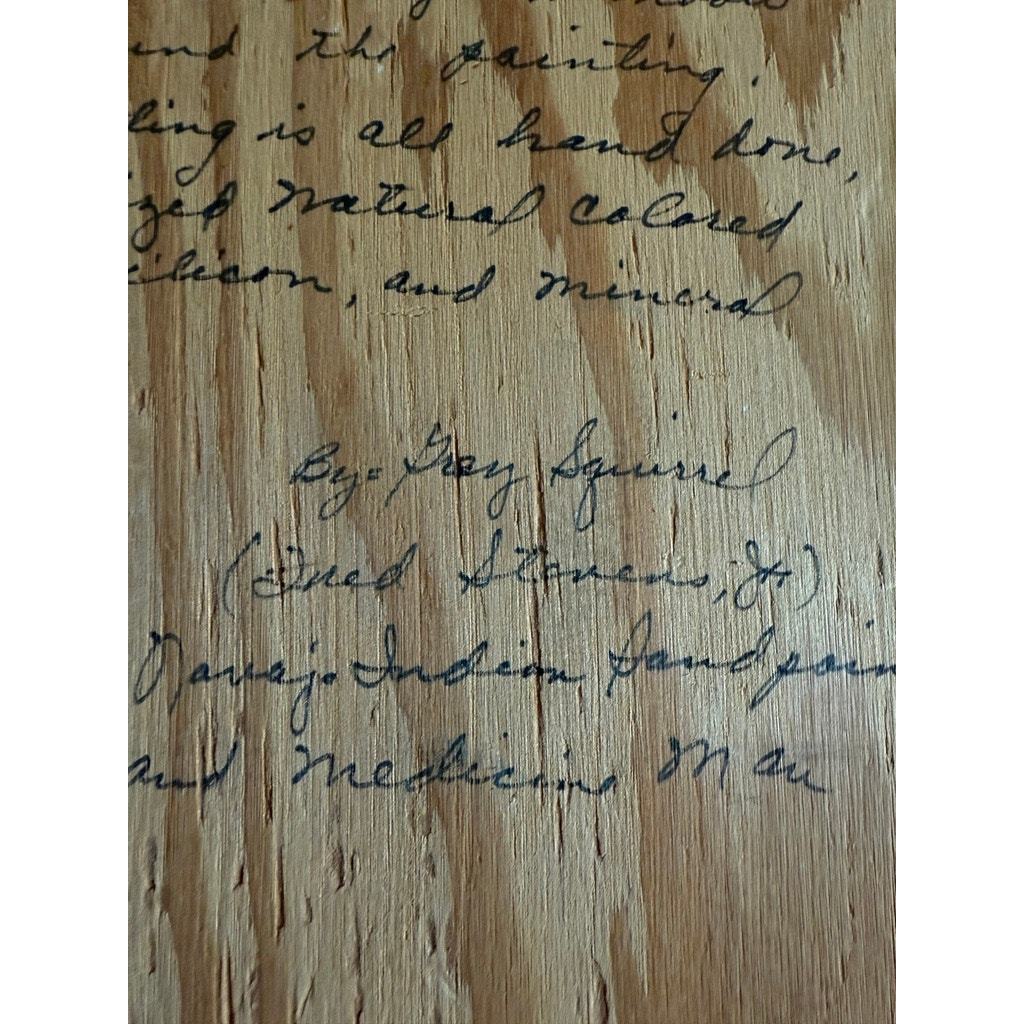 und the painting.
ling is all hand done,
ized Natural Colored
ilicon, and mineral
By: Grey Squirrel
(Fred Stevens, Jr)
Navajo Indian Sandpain
and Medicine Man